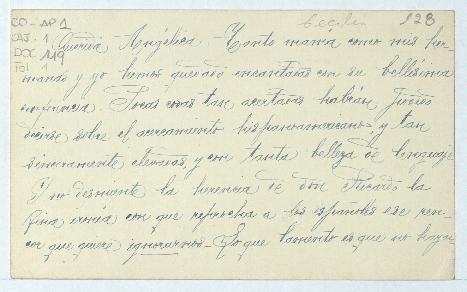 CO-AP1
CAJ. 1
DOC 119
Fol 1
Cecilia
128
Querida Angélica - Tanto mamá como mis her-
manas y yo hemos quedado encantadas con su bellísima
conferencia. Pocas cosas tan acertadas habrán podido
decirse sobre el acercamiento hispanoamericano, y tan
sinceramente elevadas, y con tanta belleza de lenguaje
Y no desmiente la herencia de don Ricardo la
fina ironía con que reprocha a los españoles ese ren-
cor que quiere ignorarnos - Lo que lamento es que no hayan